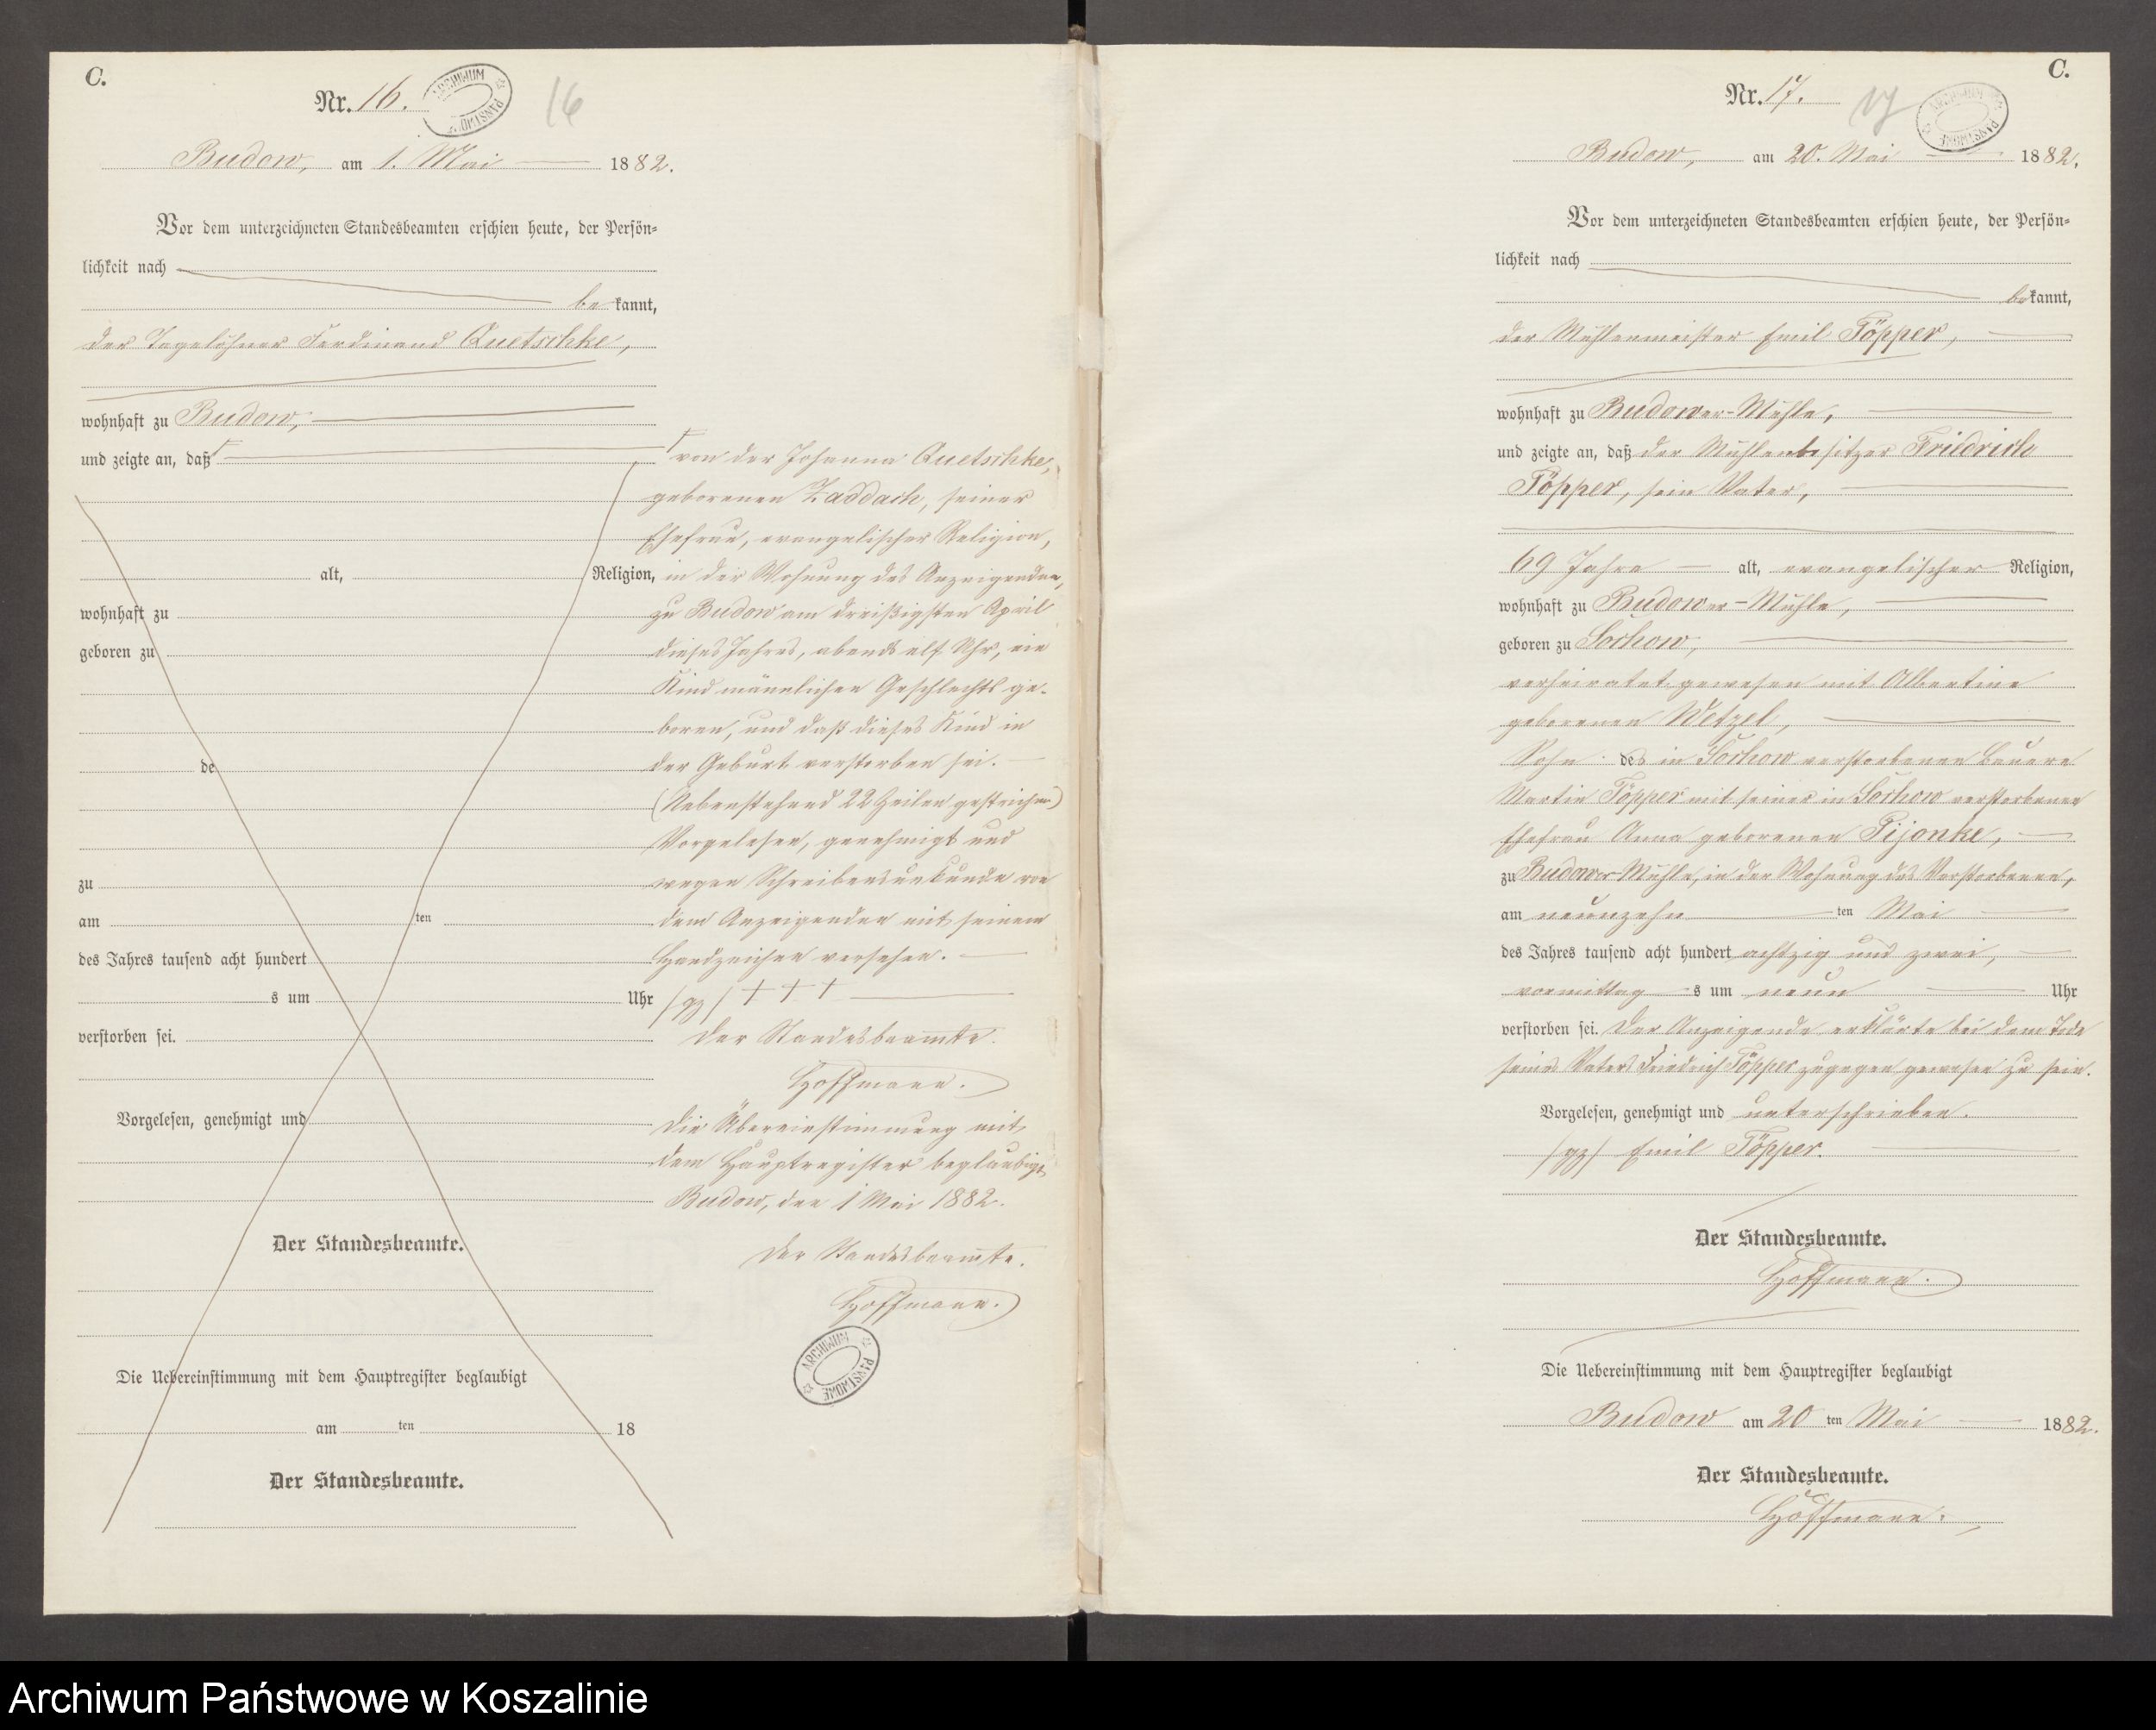 C.
Nr. 16.
ARCHIWUM PAŃSTWOWE
16
Budow, am 1. Mai 1882.
Vor dem unterzeichneten Standesbeamten erschien heute, der Persön-
lichkeit nach
be kannt,
der Tagelöhner Ferdinand Quetschke,
wohnhaft zu Budow,
und zeigte an, daß
alt, Religion,
wohnhaft zu
geboren zu
de
zu
am ten
des Jahres tausend acht hundert
s um Uhr
verstorben sei.
Vorgelesen, genehmigt und
Der Standesbeamte.
Die Uebereinstimmung mit dem Hauptregister beglaubigt
am ten 18
Der Standesbeamte.
von der Johanna Quetschke,
geborenen Zaddach, seiner
Ehefrau, evangelischer Religion,
in der Wohnung des Anzeigenden,
zu Budow am dreißigsten April
dieses Jahres, abends elf Uhr, ein
Kind männlichen Geschlechts ge-
boren, und daß dieses Kind in
der Geburt verstorben sei.
(Nebenstehend 22 Zeilen gestrichen)
Vorgelesen, genehmigt und
wegen Schreibensunkunde von
dem Anzeigenden mit seinem
Handzeichen versehen.
/gz/ + + +
Der Standesbeamte.
Hoffmann.
Die Übereinstimmung mit
dem Hauptregister beglaubigt
Budow, den 1 Mai 1882.
Der Standesbeamte.
Hoffmann.
ARCHIWUM PAŃSTWOWE
C.
Nr. 17.
17
ARCHIWUM PAŃSTWOWE
Budow, am 20. Mai 1882.
Vor dem unterzeichneten Standesbeamten erschien heute, der Persön-
lichkeit nach
bekannt,
der Mühlenmeister Emil Töpper,
wohnhaft zu Budower-Mühle,
und zeigte an, daß der Mühlenbesitzer Friedrich
Töpper, sein Vater,
69 Jahre alt, evangelischer Religion,
wohnhaft zu Budower-Mühle,
geboren zu Sochow,
verheiratet gewesen mit Albertine
geborenen Wetzel,
Sohn des in Sochow verstorbenen Bauern
Martin Töpper mit seiner in Sochow verstorbenen
Ehefrau Anna geborenen Pijonke,
zu Budower-Mühle, in der Wohnung des Verstorbenen,
am neunzehn ten Mai
des Jahres tausend acht hundert achtzig und zwei,
vormittag s um neun Uhr
verstorben sei. Der Anzeigende erklärte bei dem Tode
seines Vaters Friedrich Töpper zugegen gewesen zu sein.
Vorgelesen, genehmigt und unterschrieben.
/gz/ Emil Töpper.
Der Standesbeamte.
Hoffmann.
Die Uebereinstimmung mit dem Hauptregister beglaubigt
Budow am 20 ten Mai 1882.
Der Standesbeamte.
Hoffmann.
Archiwum Państwowe w Koszalinie